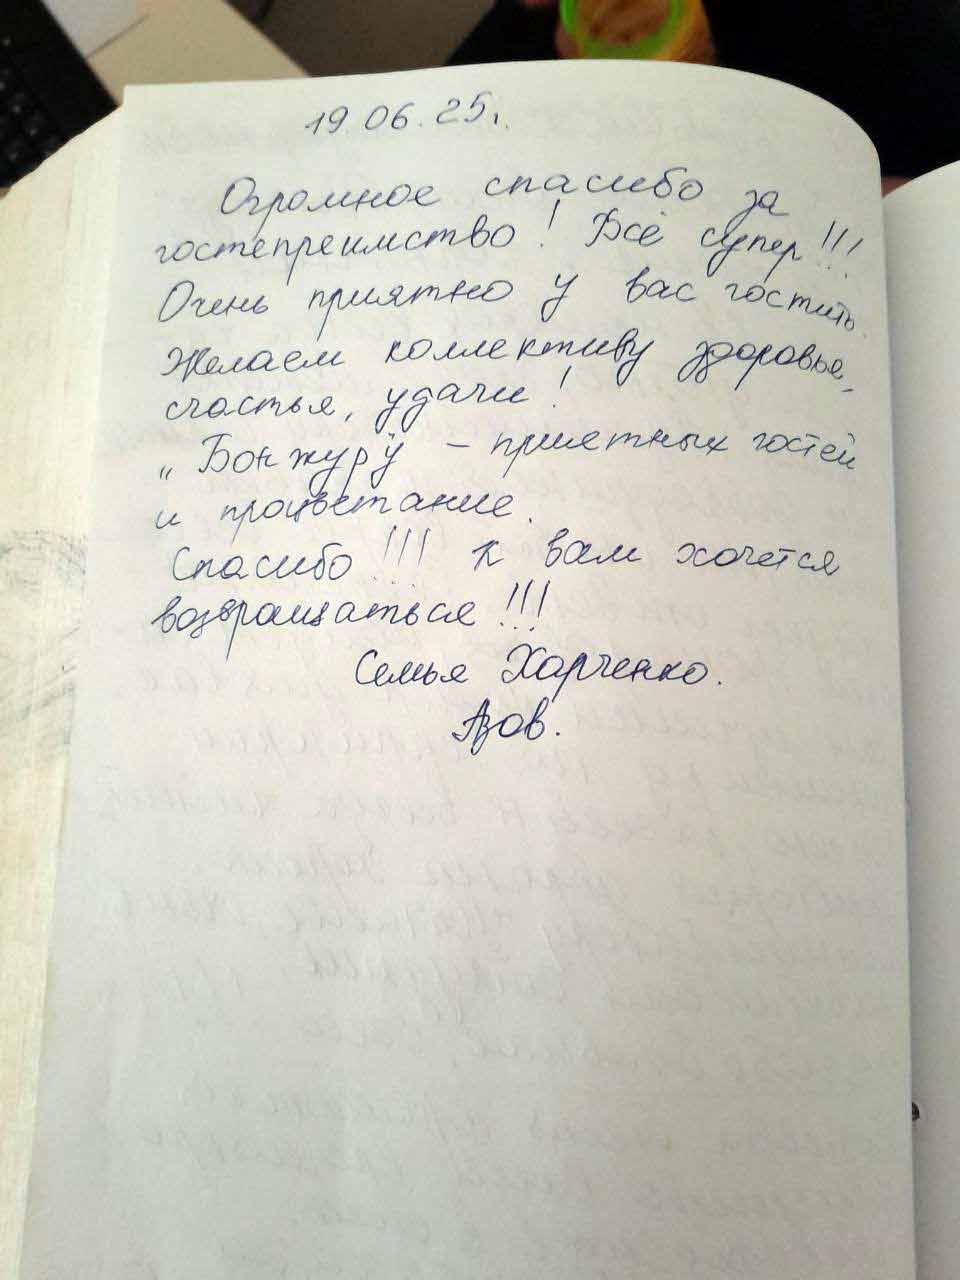 19.06.25г.
Огромное спасибо за
гостепреимство! Всё супер!!!
Очень приятно у вас гостить.
Желаем коллективу здоровье,
счастья, удачи!
„Бонжуру" – приятных гостей
и процветание.
Спасибо!!! К вам хочется
возвращаться!!!
Семья Харченко.
Азов.